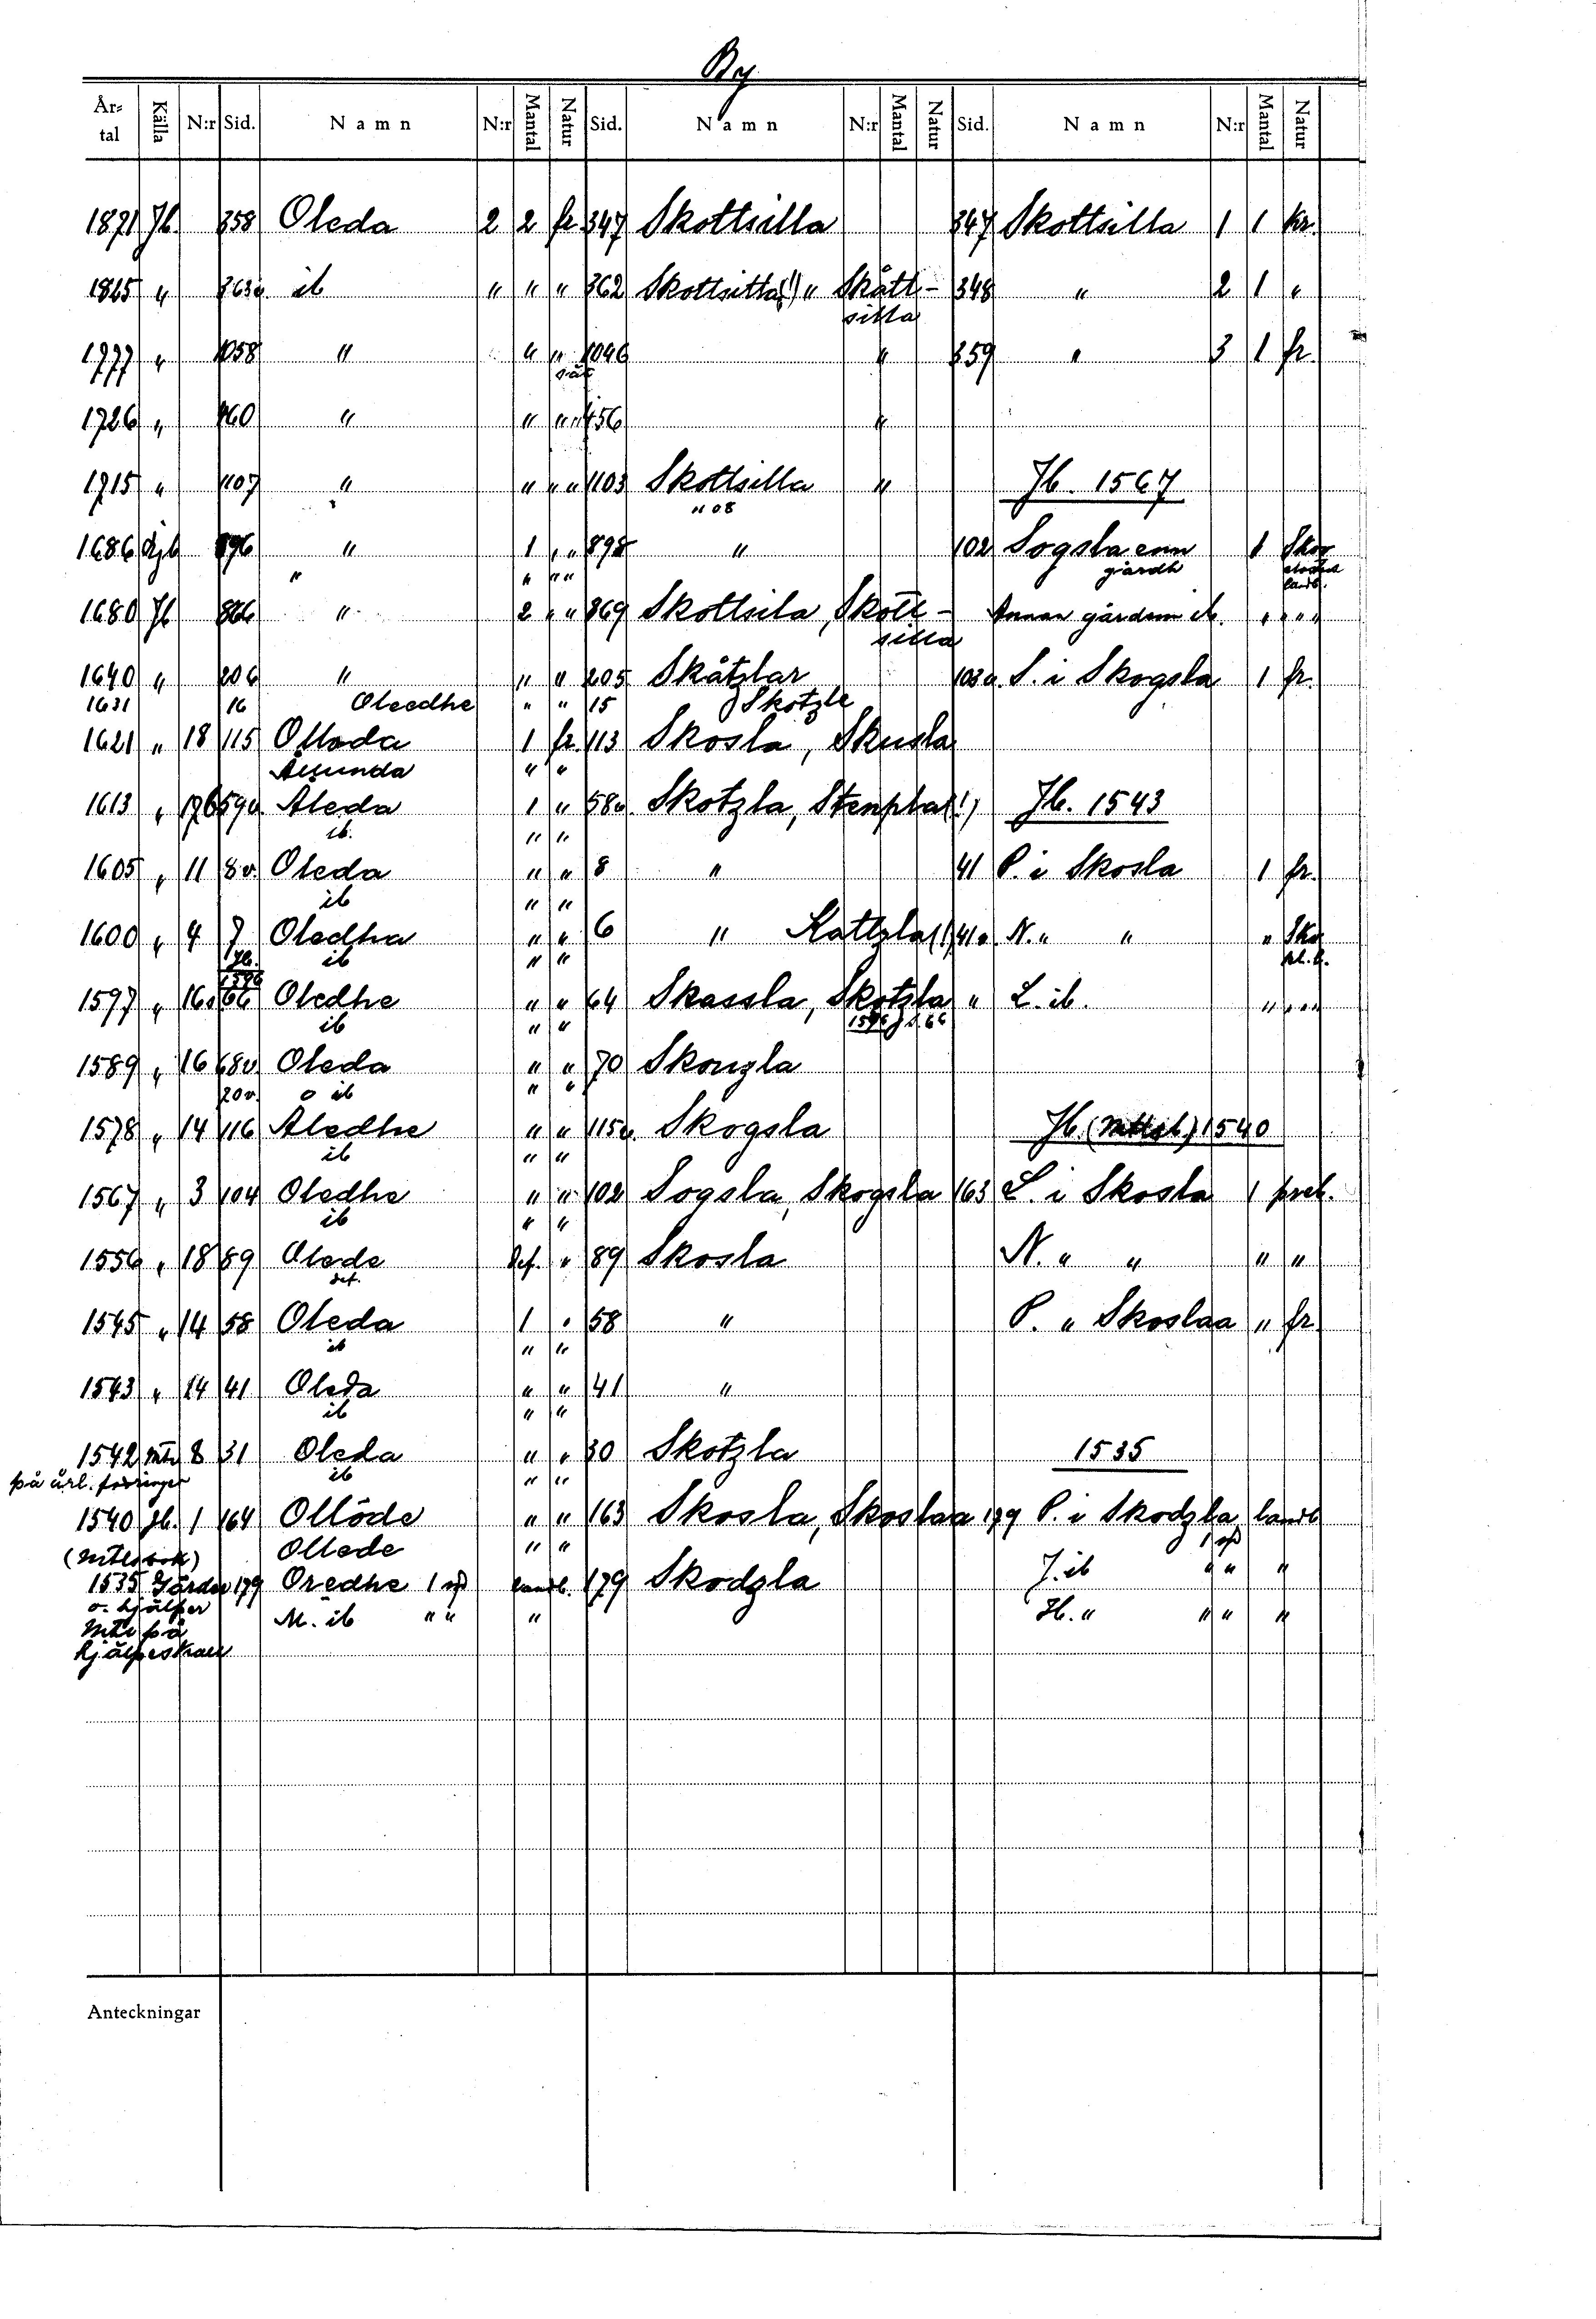 By
År-tal Källa N:r Sid. Namn N:r Mantal Natur Sid. Namn N:r Mantal Natur Sid. Namn N:r Mantal Natur
1871 Jb. 358 Oleda 2 2 fr. 347 Skottsilla 347 Skottsilla 1 1 kr.
1825 " 363v. ib " " " 362 Skottsitta(!) " Skått- 348 " 2 1 "
silla
1777 " 1058 " " " 1046 " 359 " 3 1 fr.
sät
1726 " 460 " " " " 456 "
1715 " 1107 " " " " 1103 Skottsilla " Jb. 1567
" 08
1686 896 " 1 " " 898 " 102 Sogsla enn 1 Skor
gårdh
" " " "
1680 Jb 866 " 2 " " 869 Skottsila, Skott- Annan gårdenn ib. " " " "
silla
1640 " 206 " " " 205 Skåtzlar 103v. S. i Skogsla 1 fr.
1631 16 Oleedhe " " 15 Skotzle
1621 " 18 115 Olloda 1 fr. 113 Skosla, Skusla
Ålsunda " "
1613 " 17b 59v. Aleda 1 " 58v. Skotzla, Stenpla(!) Jb. 1543
ib. " "
1605 " 11 8v. Oleda " " 8 " 41 P. i Skosla 1 fr.
ib " "
1600 " 4 7 Oledha " " 6 " Kattzla(!) 41v. N. " " " Sko
Jb. ib " "
1596
1597 " 16a 66 Oledhe " " 64 Skassla, Skotzla " L. ib. " " " "
ib " " 1596 J s. 66
1589 " 16 68v. Oleda " " 70 Skougla
20v. o ib " "
1578 " 14 116 Aledhe " " 115v. Skogsla Jb. (Mttlsb.) 1540
ib " "
1567 " 3 104 Oledhe " " 102 Sogsla, Skogsla 163 L. i Skosla 1 preb.
ib " "
1556 " 18 89 Olede def. " 89 Skosla N. " " " "
def.
1545 " 14 58 Oleda 1 " 58 " P. " Skoslaa " fr.
ib " "
1543 " 14 41 Oleda " " 41 "
ib " "
1542 Mtl 8 31 Oleda " " 30 Skotzla 1535
på årl. ib " "
1540 Jb. 1 164 Ollöde " " 163 Skosla, Skoslaa 179 P. i Skodzla landb
(Mtlsbok) Ollede " "
1535 Gärder 179 Oredhe landb. 179 Skodzla J. ib " " "
o. hjälper M. ib " " " H. " " " "
Mtl på
hjälpeskatt
Anteckningar